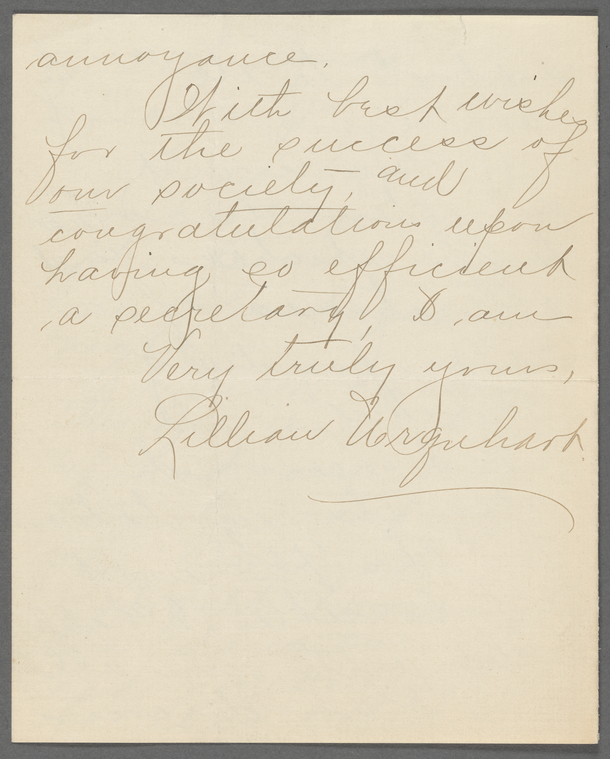 annoyance.
With best wishes
for the success of
our society, and
congratulations upon
having so efficient
a secretary, I am
Very truly yours,
Lillian Urquhart.